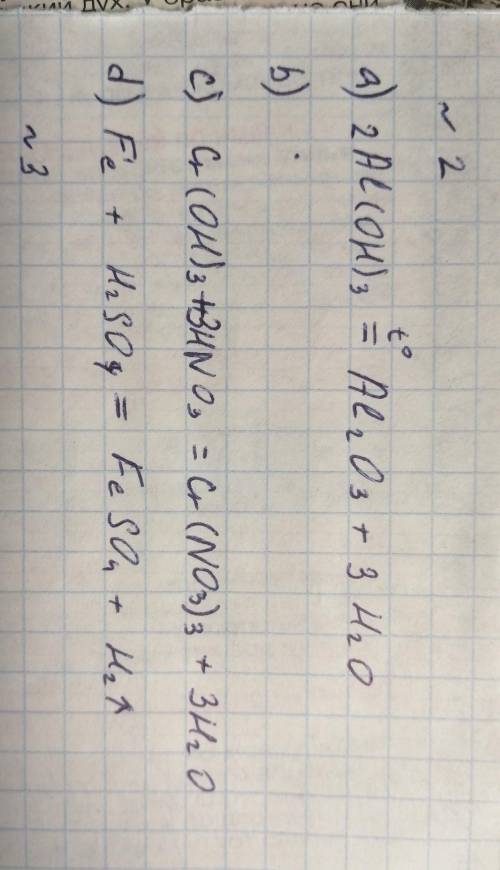 ~ 2
a) 2Al(OH)₃ =t° Al₂O₃ + 3 H₂O
b) .
c) Cr(OH)₃ + 3HNO₃ = Cr(NO₃)₃ + 3H₂O
d) Fe + H₂SO₄ = FeSO₄ + H₂↑
~ 3